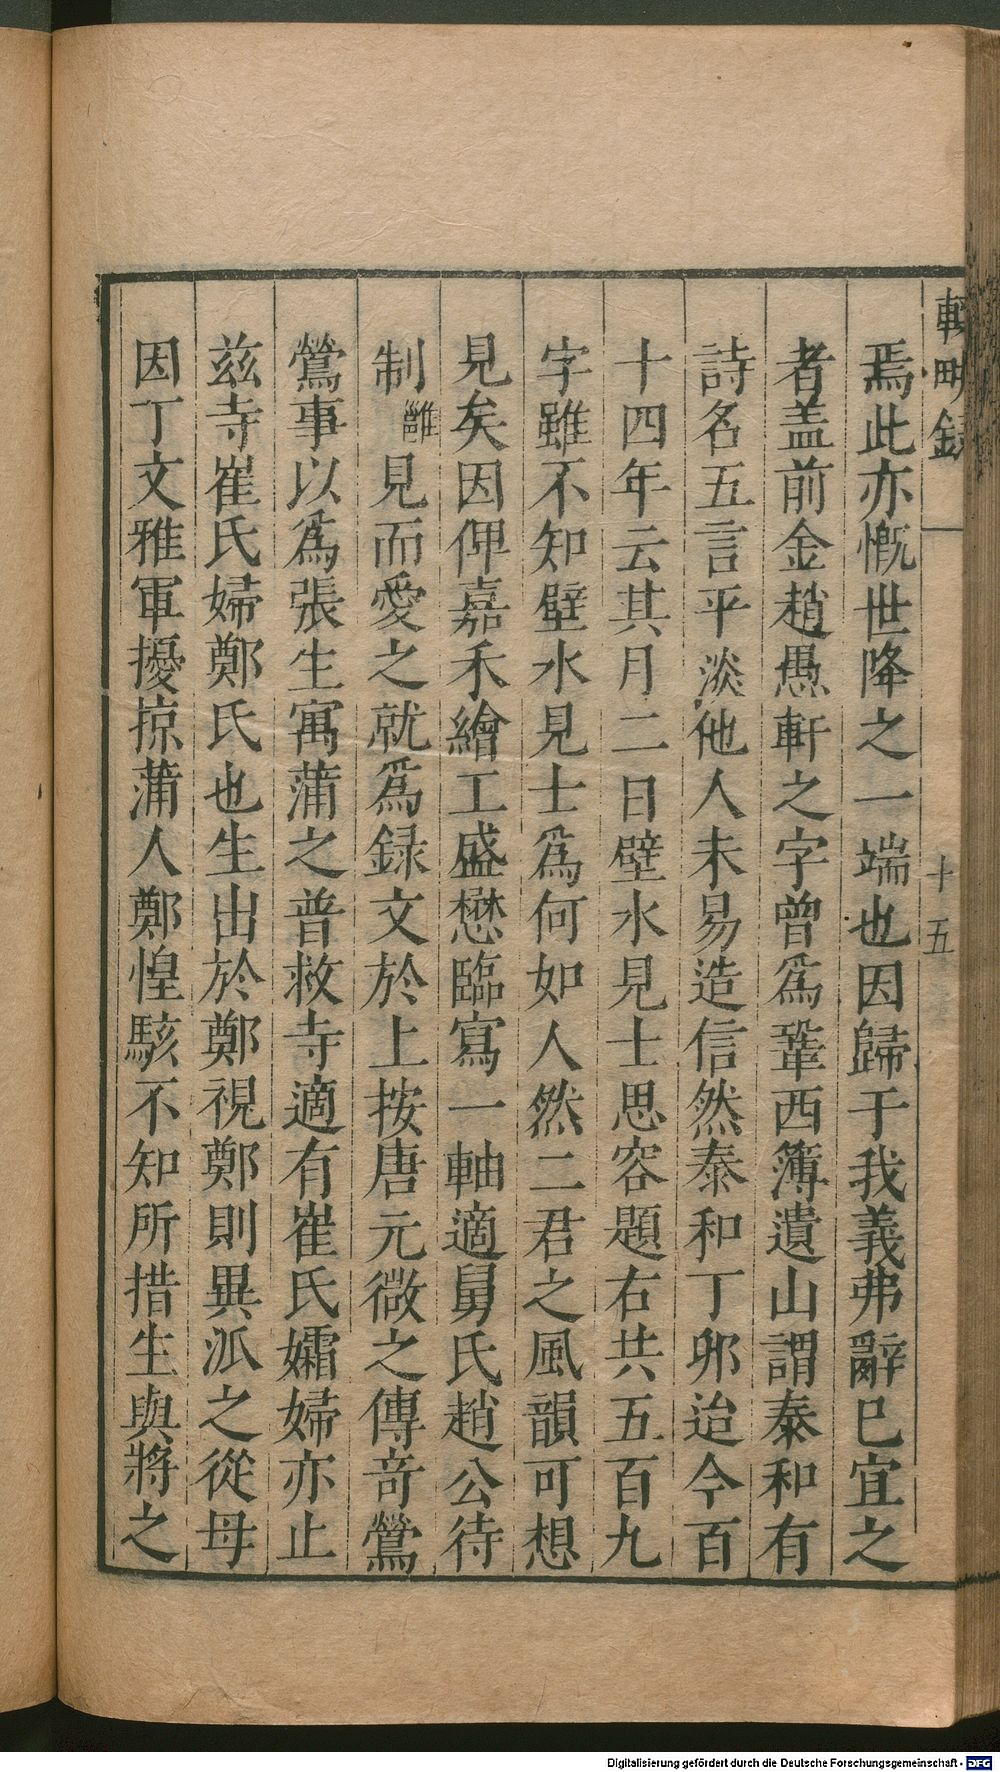 輟畊錄 十五
焉此亦慨世降之一端也因歸于我義弗辭巳宜之
者盖前金趙愚軒之字曾爲鞏西簿遺山謂泰和有
詩名五言平淡他人未易造信然泰和丁夘迨今百
十四年云其月二日壁水見士思容題右共五百九
字雖不知壁水見士爲何如人然二君之風韻可想
見矣因俾嘉禾繪工盛懋臨寫一軸適舅氏趙公待
制雝見而愛之就爲録文於上按唐元微之傳奇鶯
鶯事以爲張生寓蒲之普救寺適有崔氏孀婦亦止
兹寺崔氏婦鄭氏也生出於鄭視鄭則異派之從母
因丁文雅軍擾掠蒲人鄭惶駭不知所措生與將之
Digitalisierung gefördert durch die Deutsche Forschungsgemeinschaft - DFG